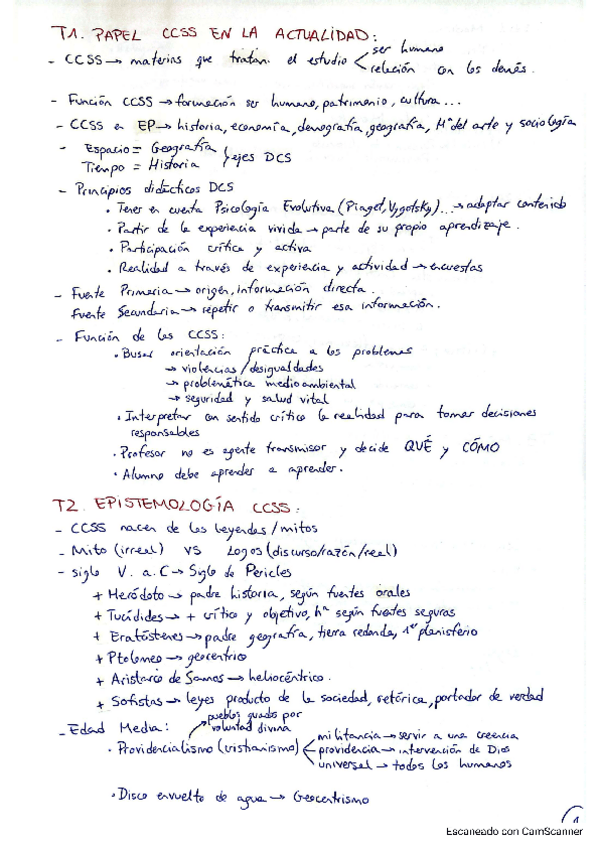 T1. PAPEL CCSS EN LA ACTUALIDAD:
- CCSS → materias que tratan el estudio < ser humano
relación con los demás.
- Función CCSS → formación ser humano, patrimonio, cultura...
- CCSS en EP → historia, economía, demografía, geografía, Hª del arte y sociología
- Espacio = Geografía
Tiempo = Historia } ejes DCS
- Principios didácticos DCS
· Tener en cuenta Psicología Evolutiva (Piaget, Vygotsky)... → adaptar contenido
· Partir de la experiencia vivida → parte de su propio aprendizaje.
· Participación crítica y activa
· Realidad a través de experiencia y actividad → encuestas
- Fuente Primaria → origen, información directa.
Fuente Secundaria → repetir o transmitir esa información.
- Función de las CCSS:
· Buscar orientación práctica a los problemas
→ violencias / desigualdades
→ problemática medioambiental
→ seguridad y salud vital
· Interpretar con sentido crítico la realidad para tomar decisiones
responsables
· Profesor no es agente transmisor y decide QUÉ y CÓMO
· Alumno debe aprender a aprender.
T2. EPISTEMOLOGÍA CCSS:
- CCSS nacen de las leyendas / mitos
- Mito (irreal) VS Logos (discurso/razón/real)
- siglo V. a. C → Siglo de Pericles
+ Heródoto → padre historia, según fuentes orales
+ Tucídides → + crítico y objetivo, hª según fuentes seguras
+ Eratóstenes → padre geografía, tierra redonda, 1er planisferio
+ Ptolomeo → geocentrico
+ Aristarco de Samos → heliocéntrico.
+ Sofistas → leyes producto de la sociedad, retórica, portador de verdad
- Edad Media:
pueblos guiados por
voluntad divina
· Providencialismo (cristianismo) < militancia → servir a una creencia
providencia → intervención de Dios
universal → todos los humanos
· Disco envuelto de agua → Geocentrismo
1
Escaneado con CamScanner